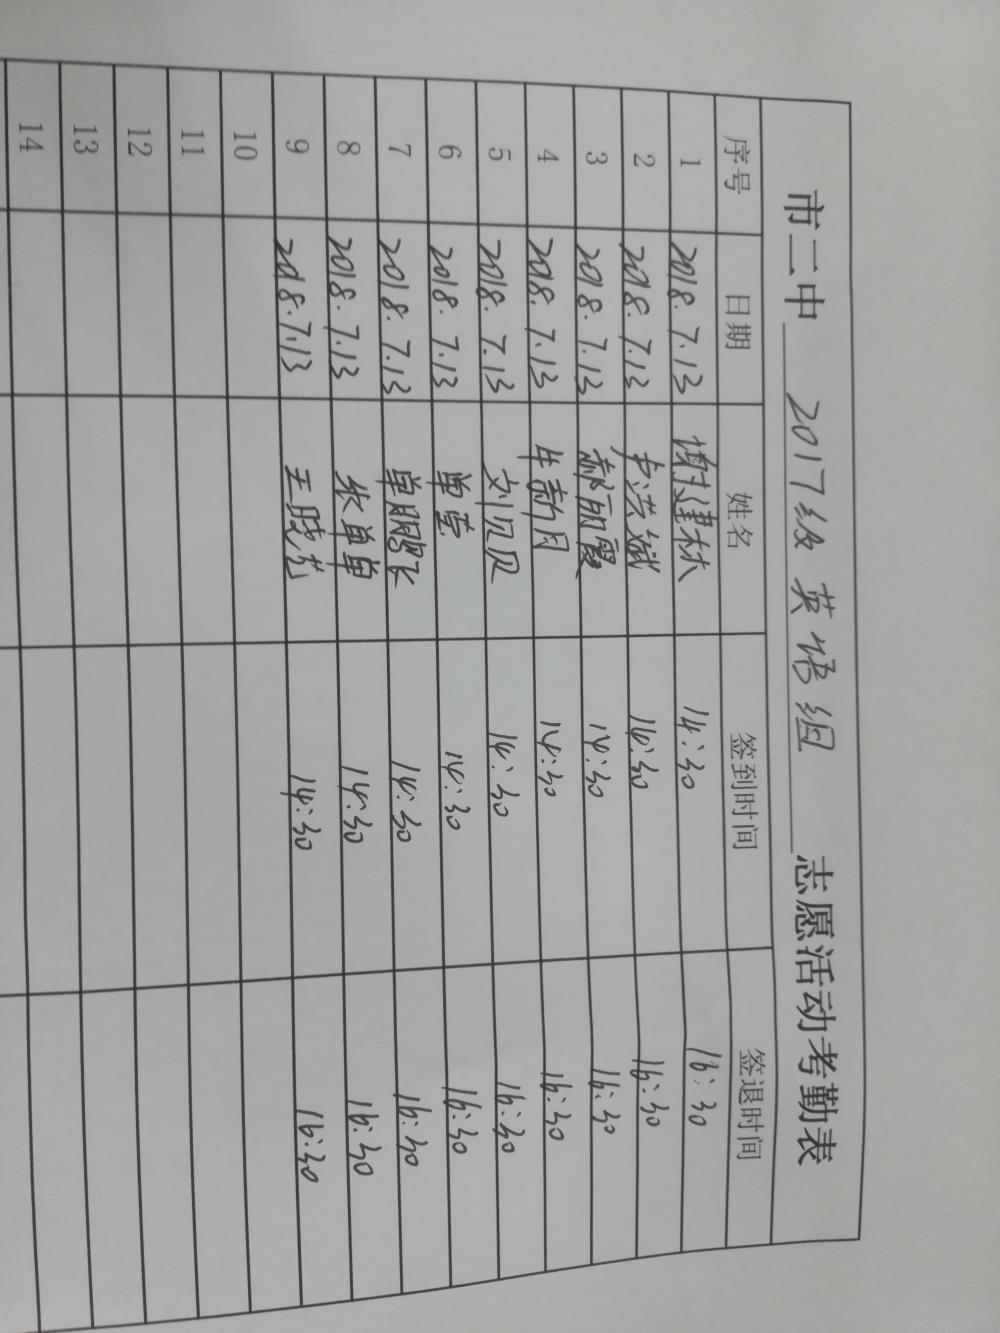 市二中 2017级英语组 志愿活动考勤表
序号 日期 姓名 签到时间 签退时间
1 2018.7.13 谢建林 14:30 16:30
2 2018.7.13 14:30 16:30
3 2018.7.13 郝丽霞 14:30 16:30
4 2018.7.13 牛新月 14:30 16:30
5 2018.7.13 刘贝贝 14:30 16:30
6 2018.7.13 14:30 16:30
7 2018.7.13 单鹏飞 14:30 16:30
8 2018.7.13 张单单 14:30 16:30
9 2018.7.13 14:30 16:30
10
11
12
13
14